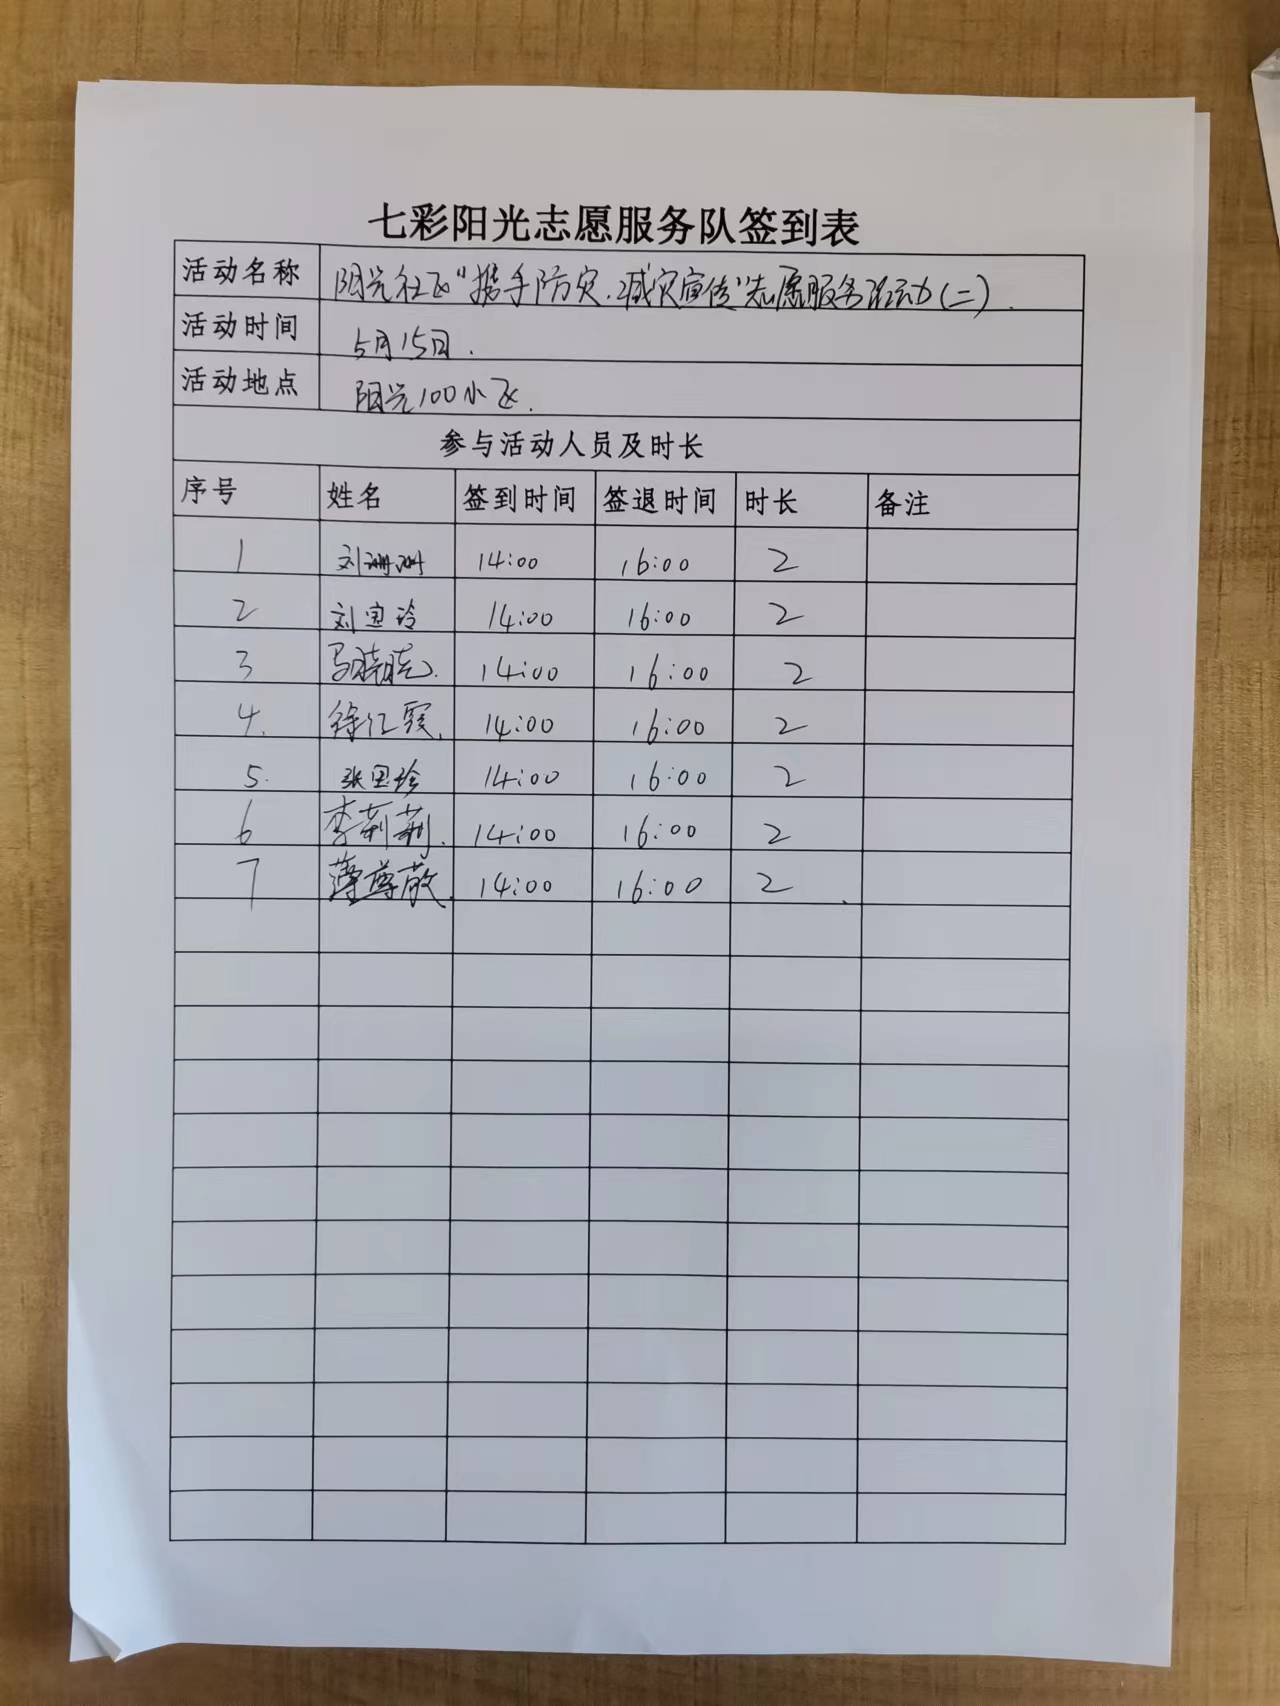 七彩阳光志愿服务队签到表
活动名称 阳光社区“携手防灾.减灾宣传”志愿服务活动(二).
活动时间 5月15日.
活动地点 阳光100小区.
参与活动人员及时长
序号 姓名 签到时间 签退时间 时长 备注
1 刘珊珊 14:00 16:00 2
2 刘宝玲 14:00 16:00 2
3 马晓晓. 14:00 16:00 2
4. 徐仁霞. 14:00 16:00 2
5. 张国珍 14:00 16:00 2
6 李莉莉. 14:00 16:00 2
7 薄尊敬. 14:00 16:00 2